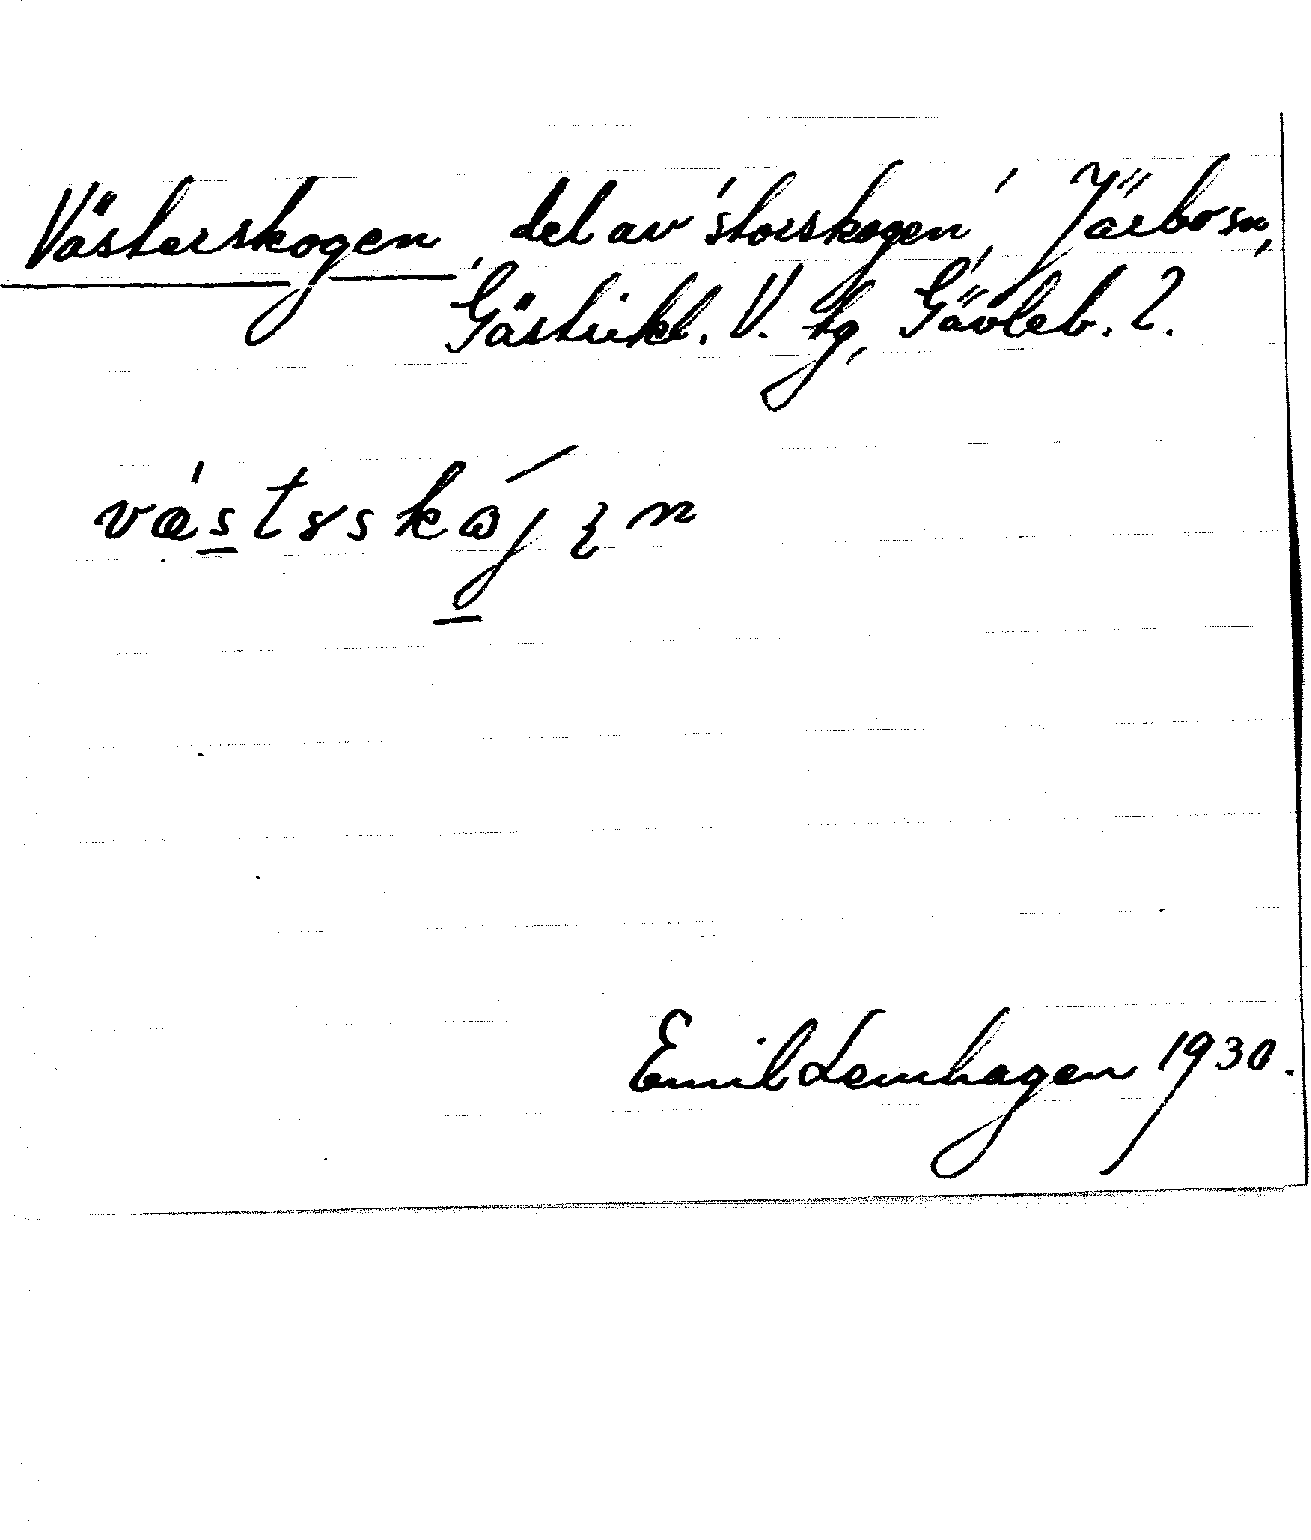 Västerskogen, del av 'storskogen', Järbo sn,
Gästrikl. V. tg, Gävleb. l.
Emil Lemhagen 1930.